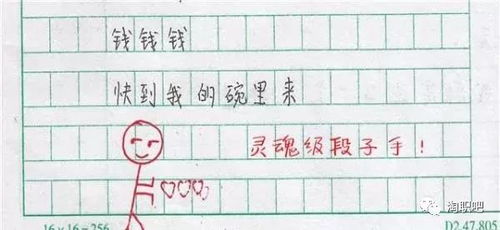 钱钱钱
快到我的碗里来
灵魂级段子手！
淘职吧
16×16=256
D2.47.805